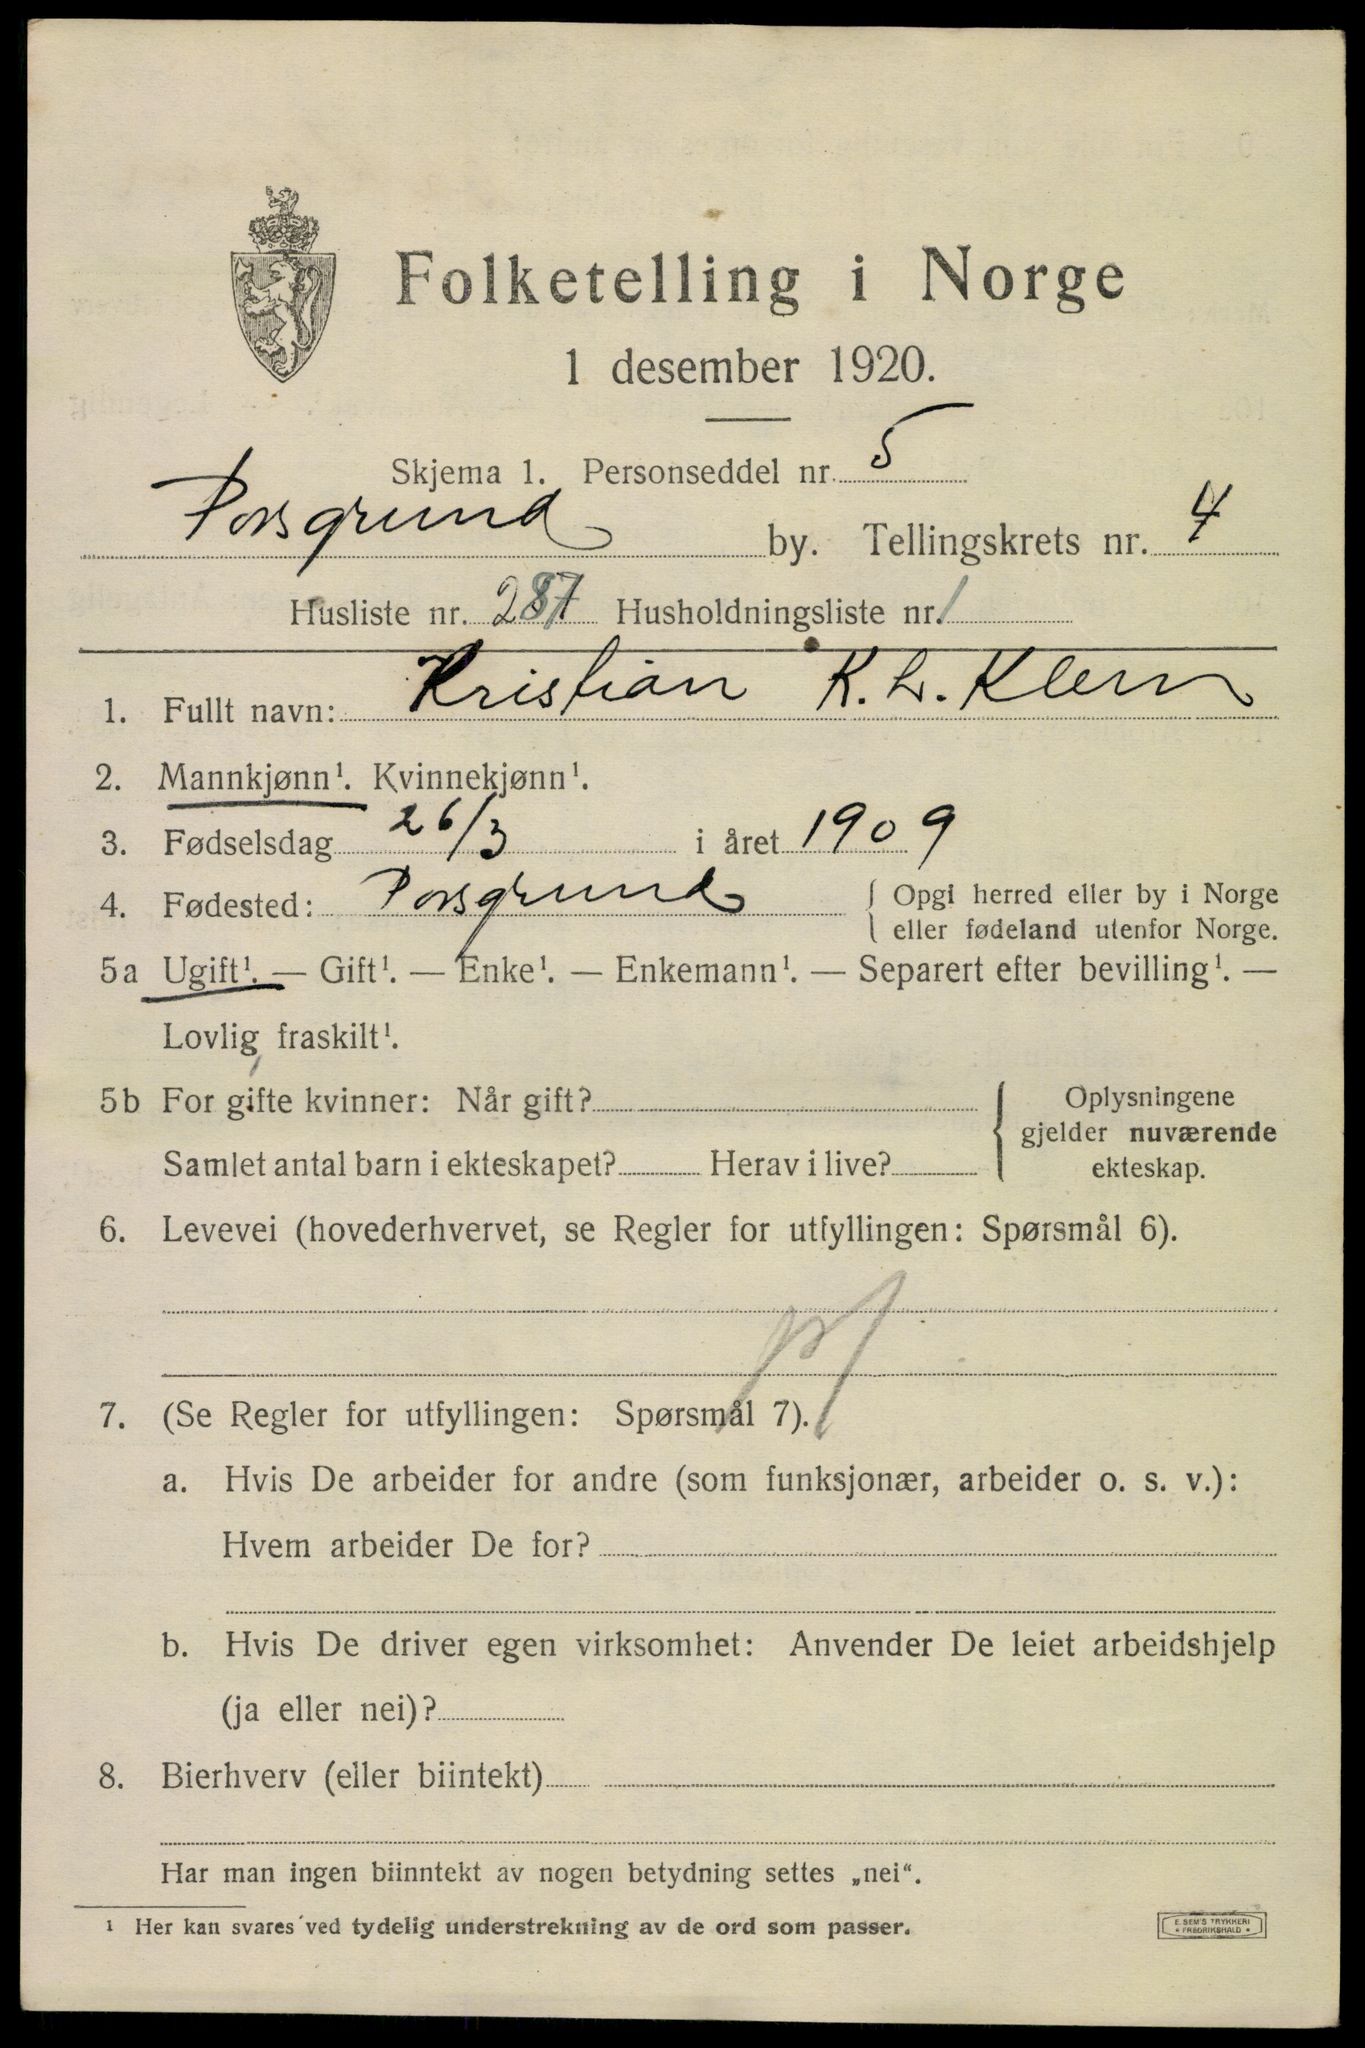 Folketelling i Norge
1 desember 1920.
Skjema 1. Personseddel nr. 5
Porsgrund by. Tellingskrets nr. 4
Husliste nr. 287 Husholdningsliste nr. 1
1. Fullt navn: Kristian K. L. Klem
2. Mannkjønn¹. Kvinnekjønn¹.
3. Fødselsdag 26/3 i året 1909
4. Fødested: Porsgrund { Opgi herred eller by i Norge
eller fødeland utenfor Norge.
5a Ugift¹. — Gift¹. — Enke¹. — Enkemann¹. — Separert efter bevilling¹. —
Lovlig fraskilt¹.
5b For gifte kvinner: Når gift? { Oplysningene
gjelder nuværende
Samlet antal barn i ekteskapet? Herav i live? ekteskap.
6. Levevei (hovederhvervet, se Regler for utfyllingen: Spørsmål 6).
7. (Se Regler for utfyllingen: Spørsmål 7).
a. Hvis De arbeider for andre (som funksjonær, arbeider o. s. v.):
Hvem arbeider De for?
b. Hvis De driver egen virksomhet: Anvender De leiet arbeidshjelp
(ja eller nei)?
8. Bierhverv (eller biintekt)
Har man ingen biinntekt av nogen betydning settes „nei“.
¹ Her kan svares ved tydelig understrekning av de ord som passer.
E. SEM'S TRYKKERI
FREDRIKSHALD